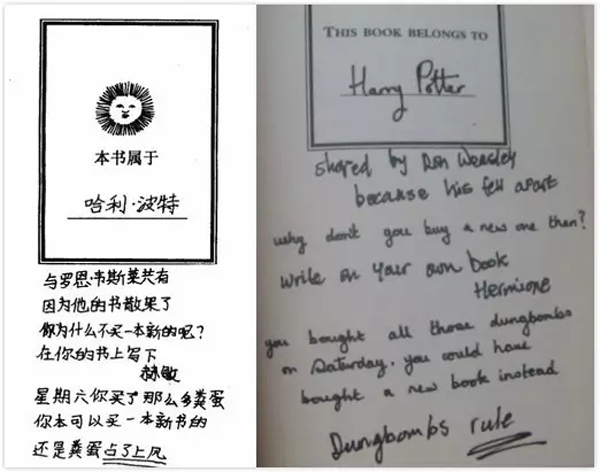 本书属于
哈利·波特
与罗恩·韦斯莱共有
因为他的书散架了
你为什么不买一本新的呢?
在你的书上写下
赫敏
星期六你买了那么多粪蛋
你本可以买一本新书的
还是粪蛋占了上风
THIS BOOK BELONGS TO
Harry Potter
shared by Ron Weasley
because his fell apart
why don't you buy a new one then?
write on your own book
Hermione
you bought all those dungbombs
on Saturday. you could have
bought a new book instead
Dungbombs rule